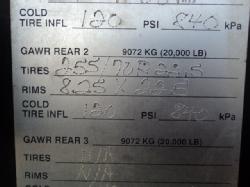 COLD
TIRE INFL 120 PSI 840 kPa
GAWR REAR 2 9072 KG (20,000 LB)
TIRES 255/70R22.5
RIMS 8.25 X 22.5
COLD
TIRE INFL 120 PSI 840 kPa
GAWR REAR 3 9072 KG (20,000 LB)
TIRES N/A
RIMS N/A